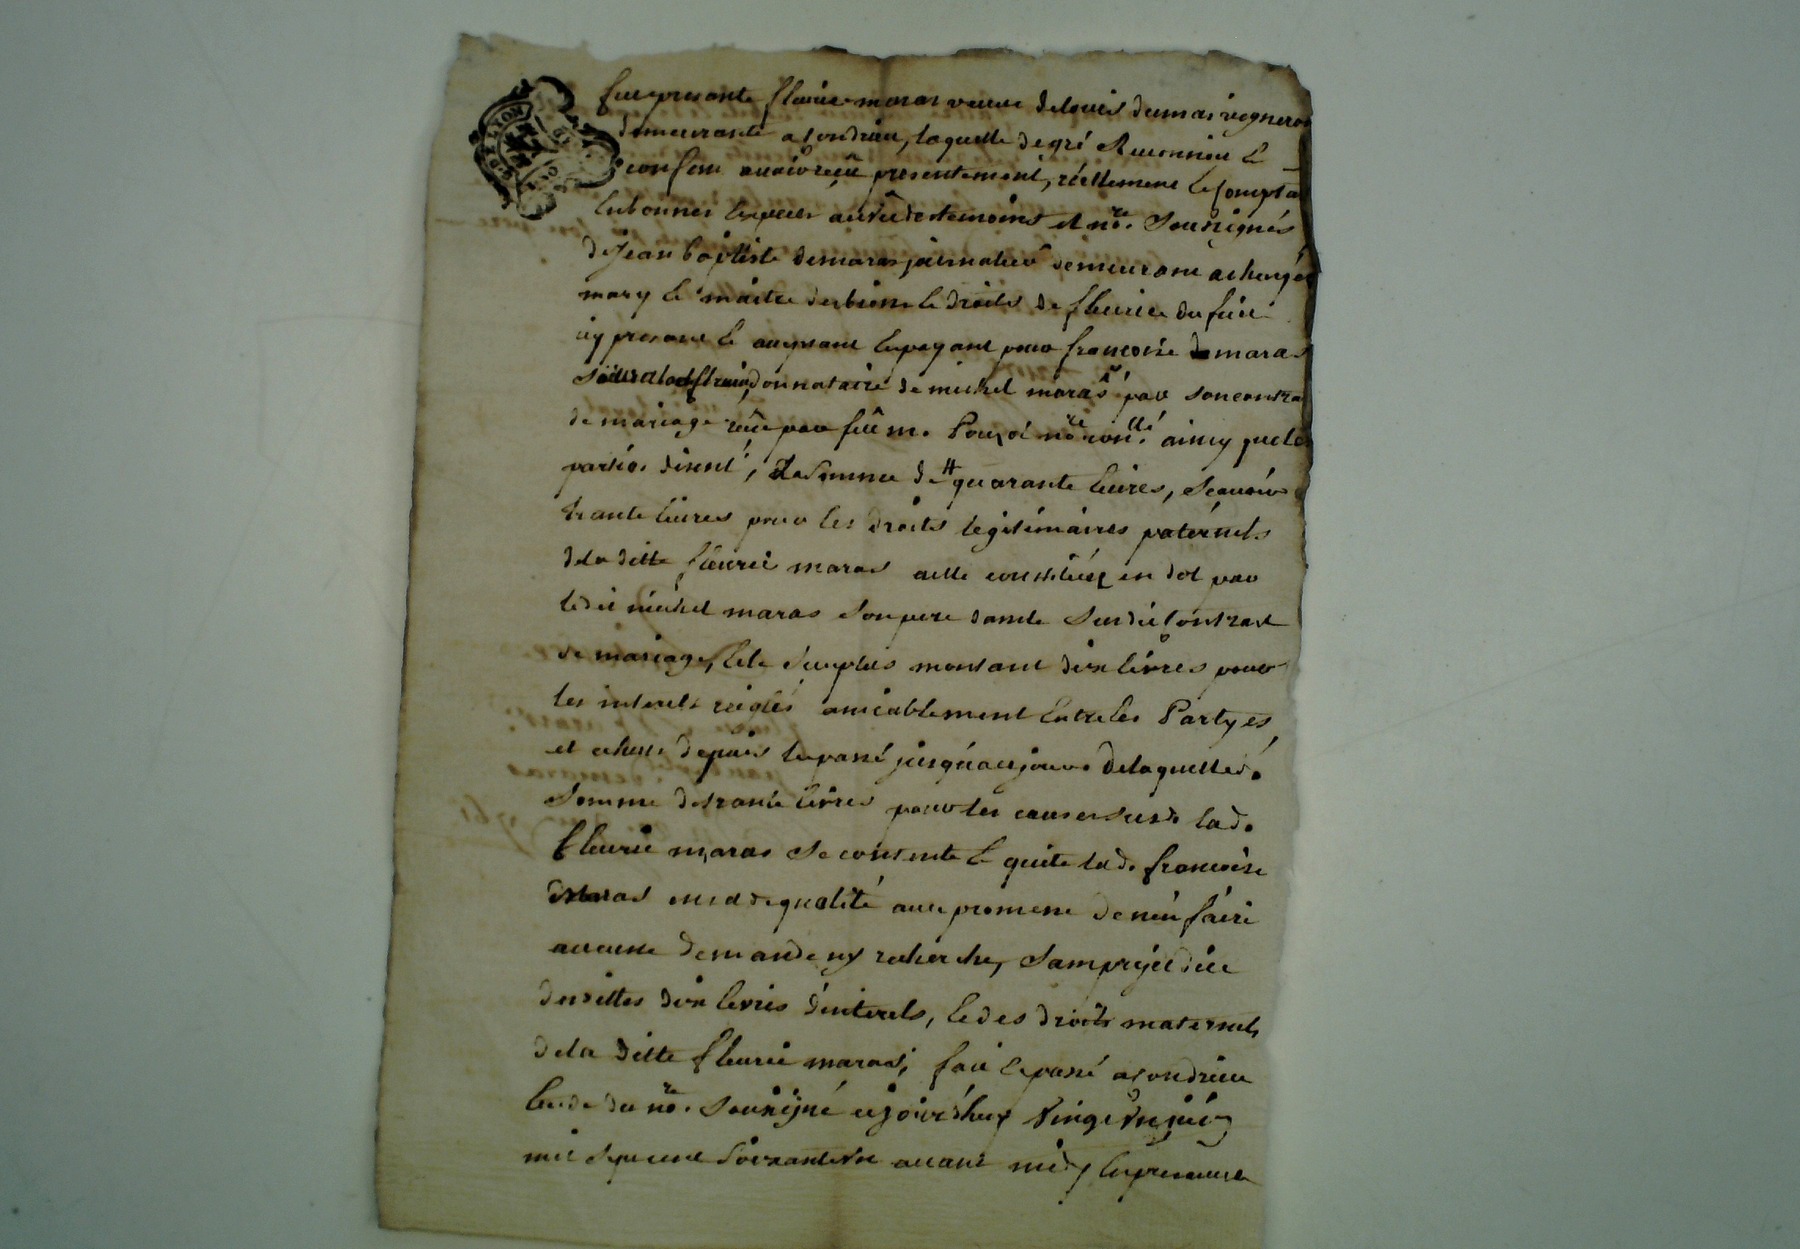 LYON
fut presente fleurie maras veuve de louis dumas vigneron
demeurante a Condrieu, laquelle de gré a Reconneu &
confessé avoir reçû presentement, réellement & compta
En bonnes Especes au vû des temoins et nore. Soussignés
de Jean baptiste demaras journalier demeurant a
mary & maitre des biens & droits de fleurie du
icy present & acceptant & payant pour françoise demaras
donnataire de michel maras par son contra
de mariage reçû par feû me. nore ainsy que les
parties disent, La Somme de quarante livres, Scavoir
trante livres pour les droits legitimaires paternels
de la ditte fleurie maras a elle constitués en dot par
ledit michel maras Son pere dans le Susdit Contract
de mariage, & le Surplus montant dix livres pour
les interets reiglés amicablement Entre les Partyes
et echus depuis le passé jusqu'a ce jour. de laquelle d.
Somme de trante livres pour les causes Susd. lad.
fleurie maras Se contente & quite lad. françoise
maras en sad. qualité avec promesse de n'en faire
aucune demande ny recherche, Sans prejudice
desdittes dix livres d'interets, & des droits maternels
de la ditte fleurie maras; fait & passé a Condrieu
Etude du nore. Soussigné cejourd'huy Vingt Un juin
mil Sept cent Soixante Un avant midy En presence